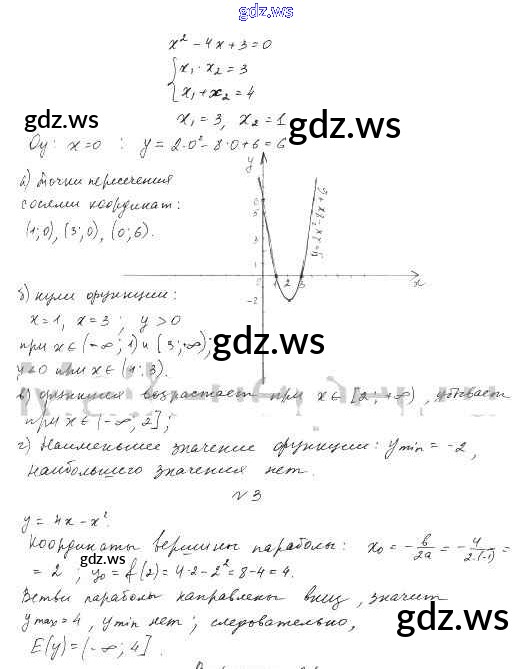 gdz.ws
x² - 4x + 3 = 0
{ x₁ · x₂ = 3
{ x₁ + x₂ = 4
x₁ = 3, x₂ = 1
gdz.ws
gdz.ws
Оу: x = 0 : y = 2·0² - 8·0 + 6 = 6
а) Точки пересечения
с осями координат:
(1; 0), (3; 0), (0; 6).
y
6
1 2 3
x
-2
y = 2x² - 8x + 6
б) нули функции:
x = 1, x = 3 ; y > 0
при x ∈ (-∞; 1) и [3; +∞);
y < 0 при x ∈ (1; 3).
gdz.ws
в) функция возрастает при x ∈ [2; +∞), убывает
при x ∈ (-∞, 2];
г) Наименьшее значение функции: y min = -2,
наибольшего значения нет.
№ 3
y = 4x - x².
Координаты вершины параболы: x₀ = -в/2a = -4/2·(-1) =
= 2 ; y₀ = f(2) = 4·2 - 2² = 8 - 4 = 4.
gdz.ws
Ветви параболы направлены вниз, значит
y max = 4, y min нет; следовательно,
E(y) = (-∞; 4].
gdz.ws